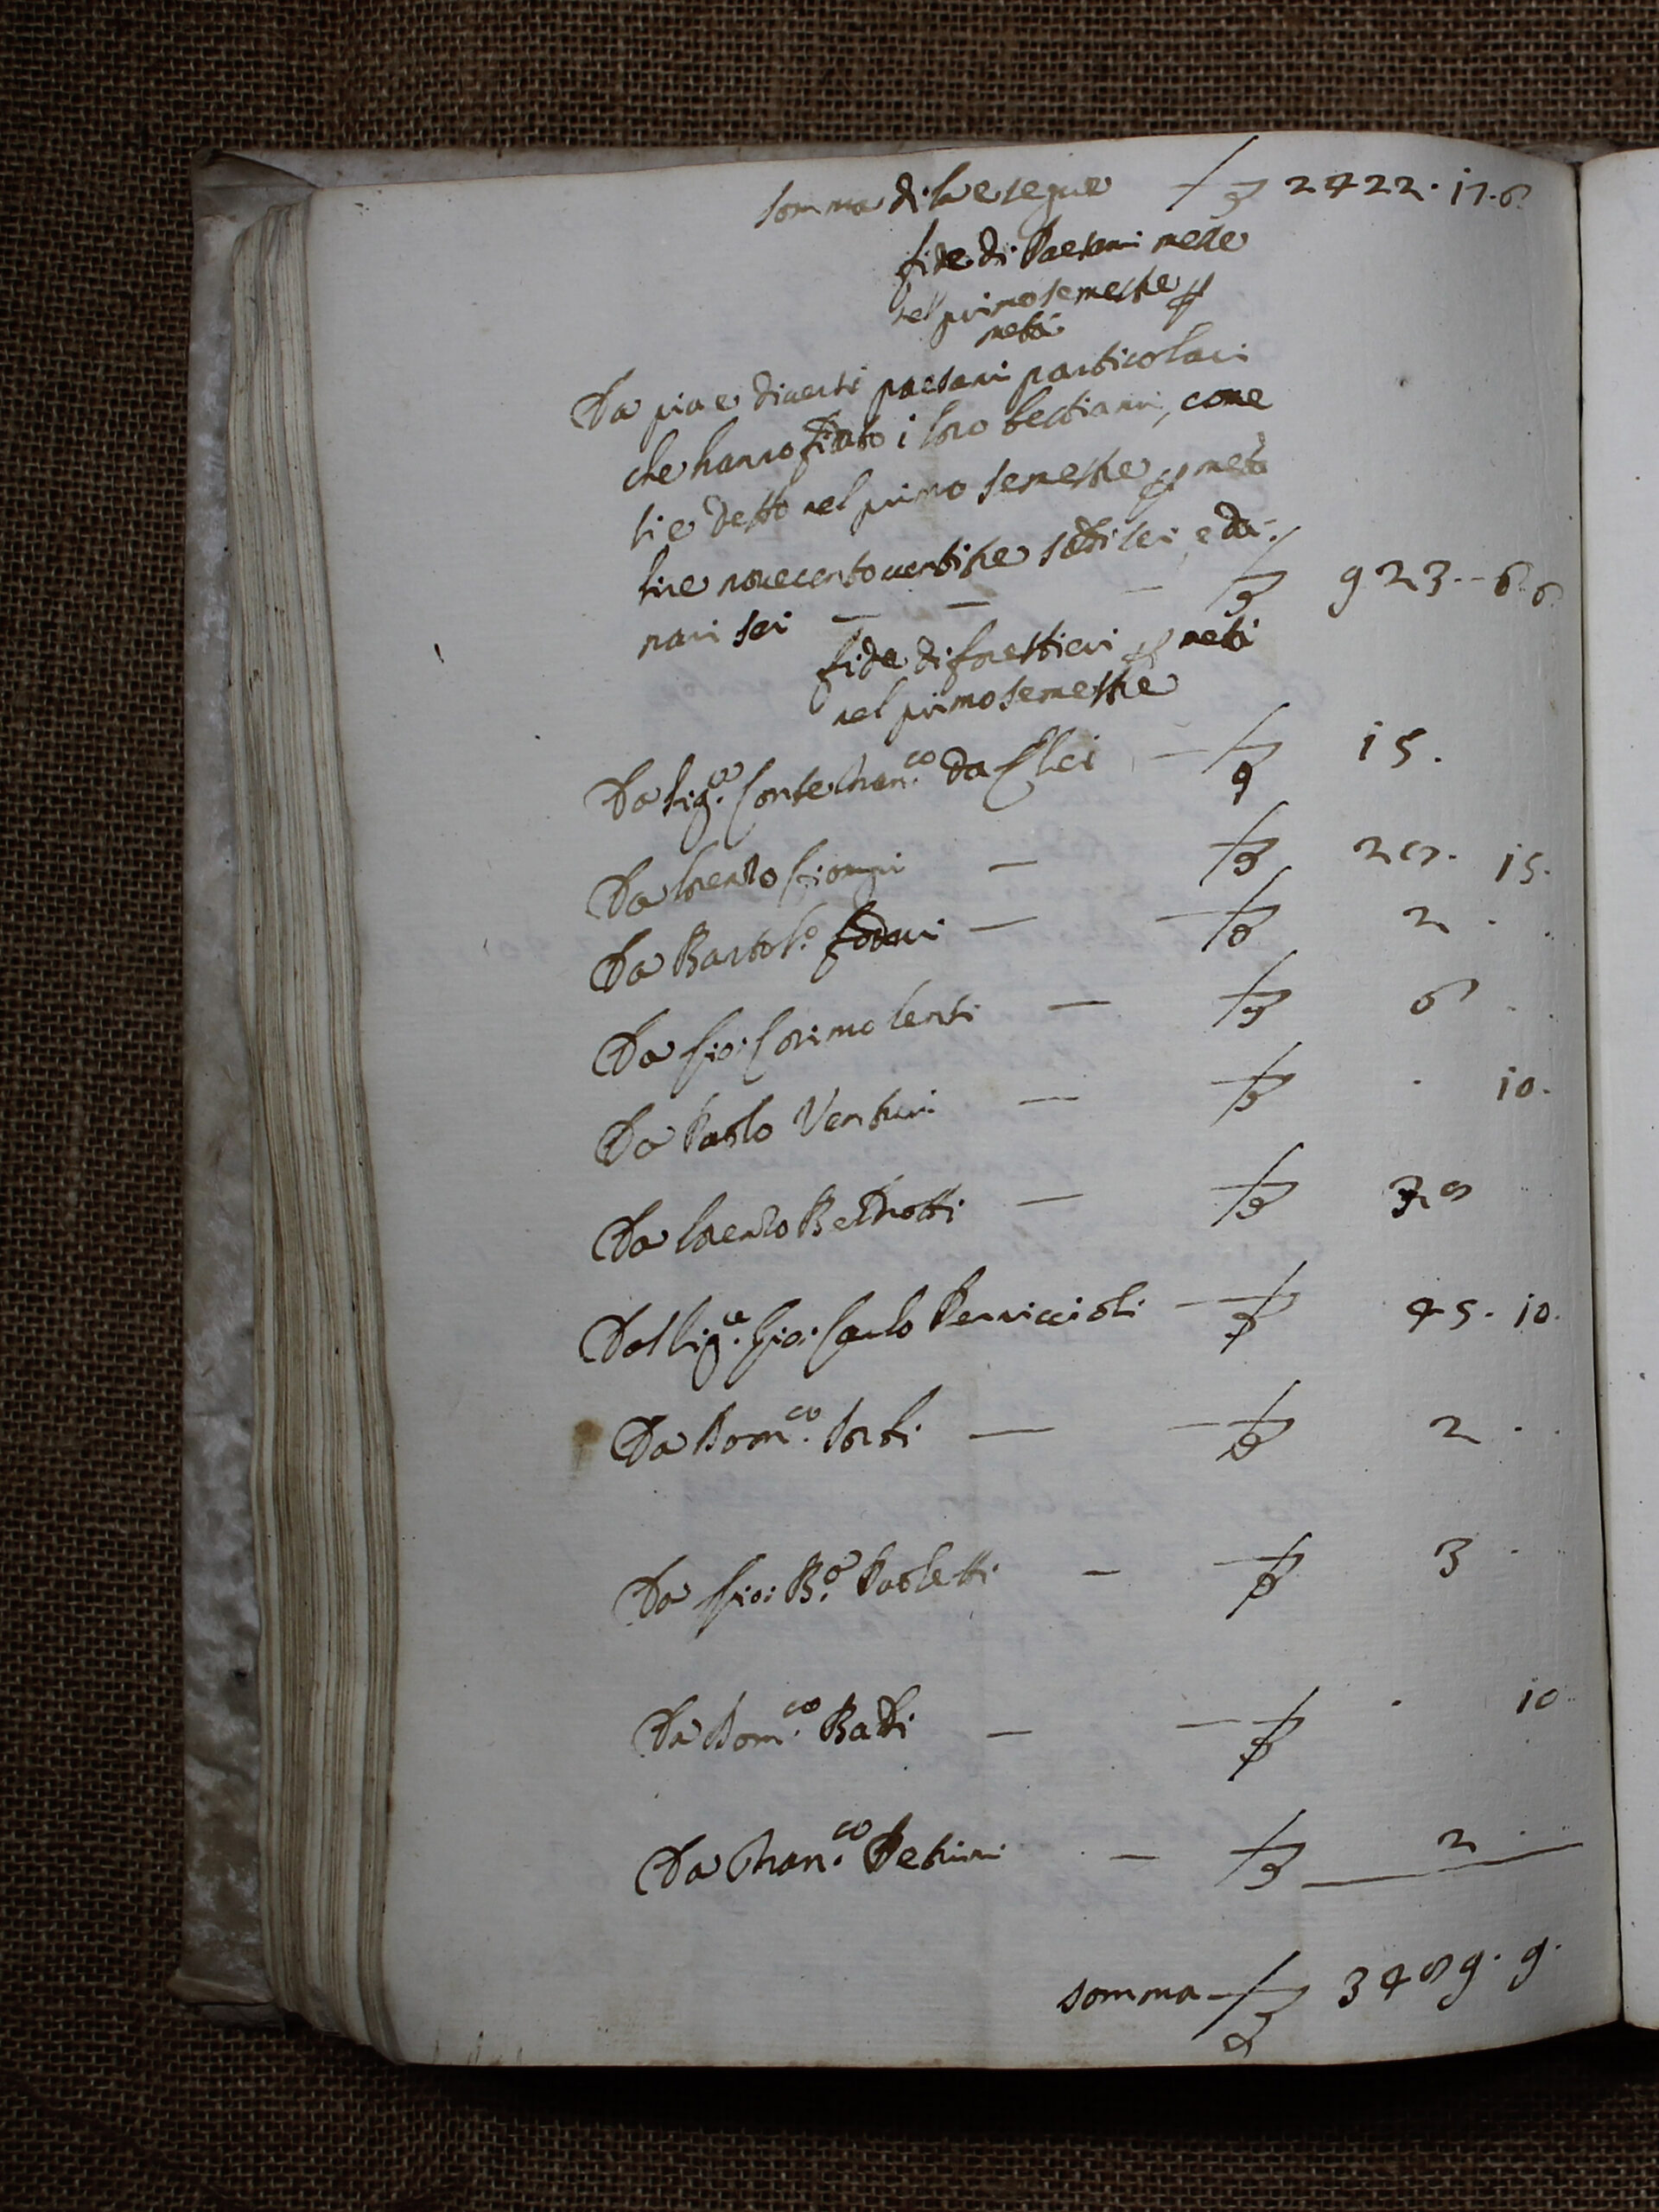 somma di là e segue £ 2422. 17. 6.
fide di Paesani messe
nel primo semestre p
metà
Da più e diversi paesani particolari
che hanno fidato i loro bestiami, come
si è detto nel primo semestre p metà
lire novecentoventitre soldi sei e da-
nari sei — — — £ 923. - 6. 6.
fide di forestieri p metà
nel primo semestre
Da Sig.re Conte Fran.co da Elci — £ 15.
Da Lorenzo — £ 20. 15.
Da Bartol.o — £ 2 . .
Da Gio: Cosimo Lenti — £ 6 . .
Da Paolo Venturi — £ . 10.
Da Lorenzo — £ 30
Dal Sig.re Gio: Carlo Perniccioli — £ 45. 10.
Da Dom.co Sorbi — £ 2 . .
Da Gio: B.a Paoletti — £ 3 .
Da Dom.co — £ . 10
Da Fran.co Petrini — £ 2 . .
somma £ 3409. 9.